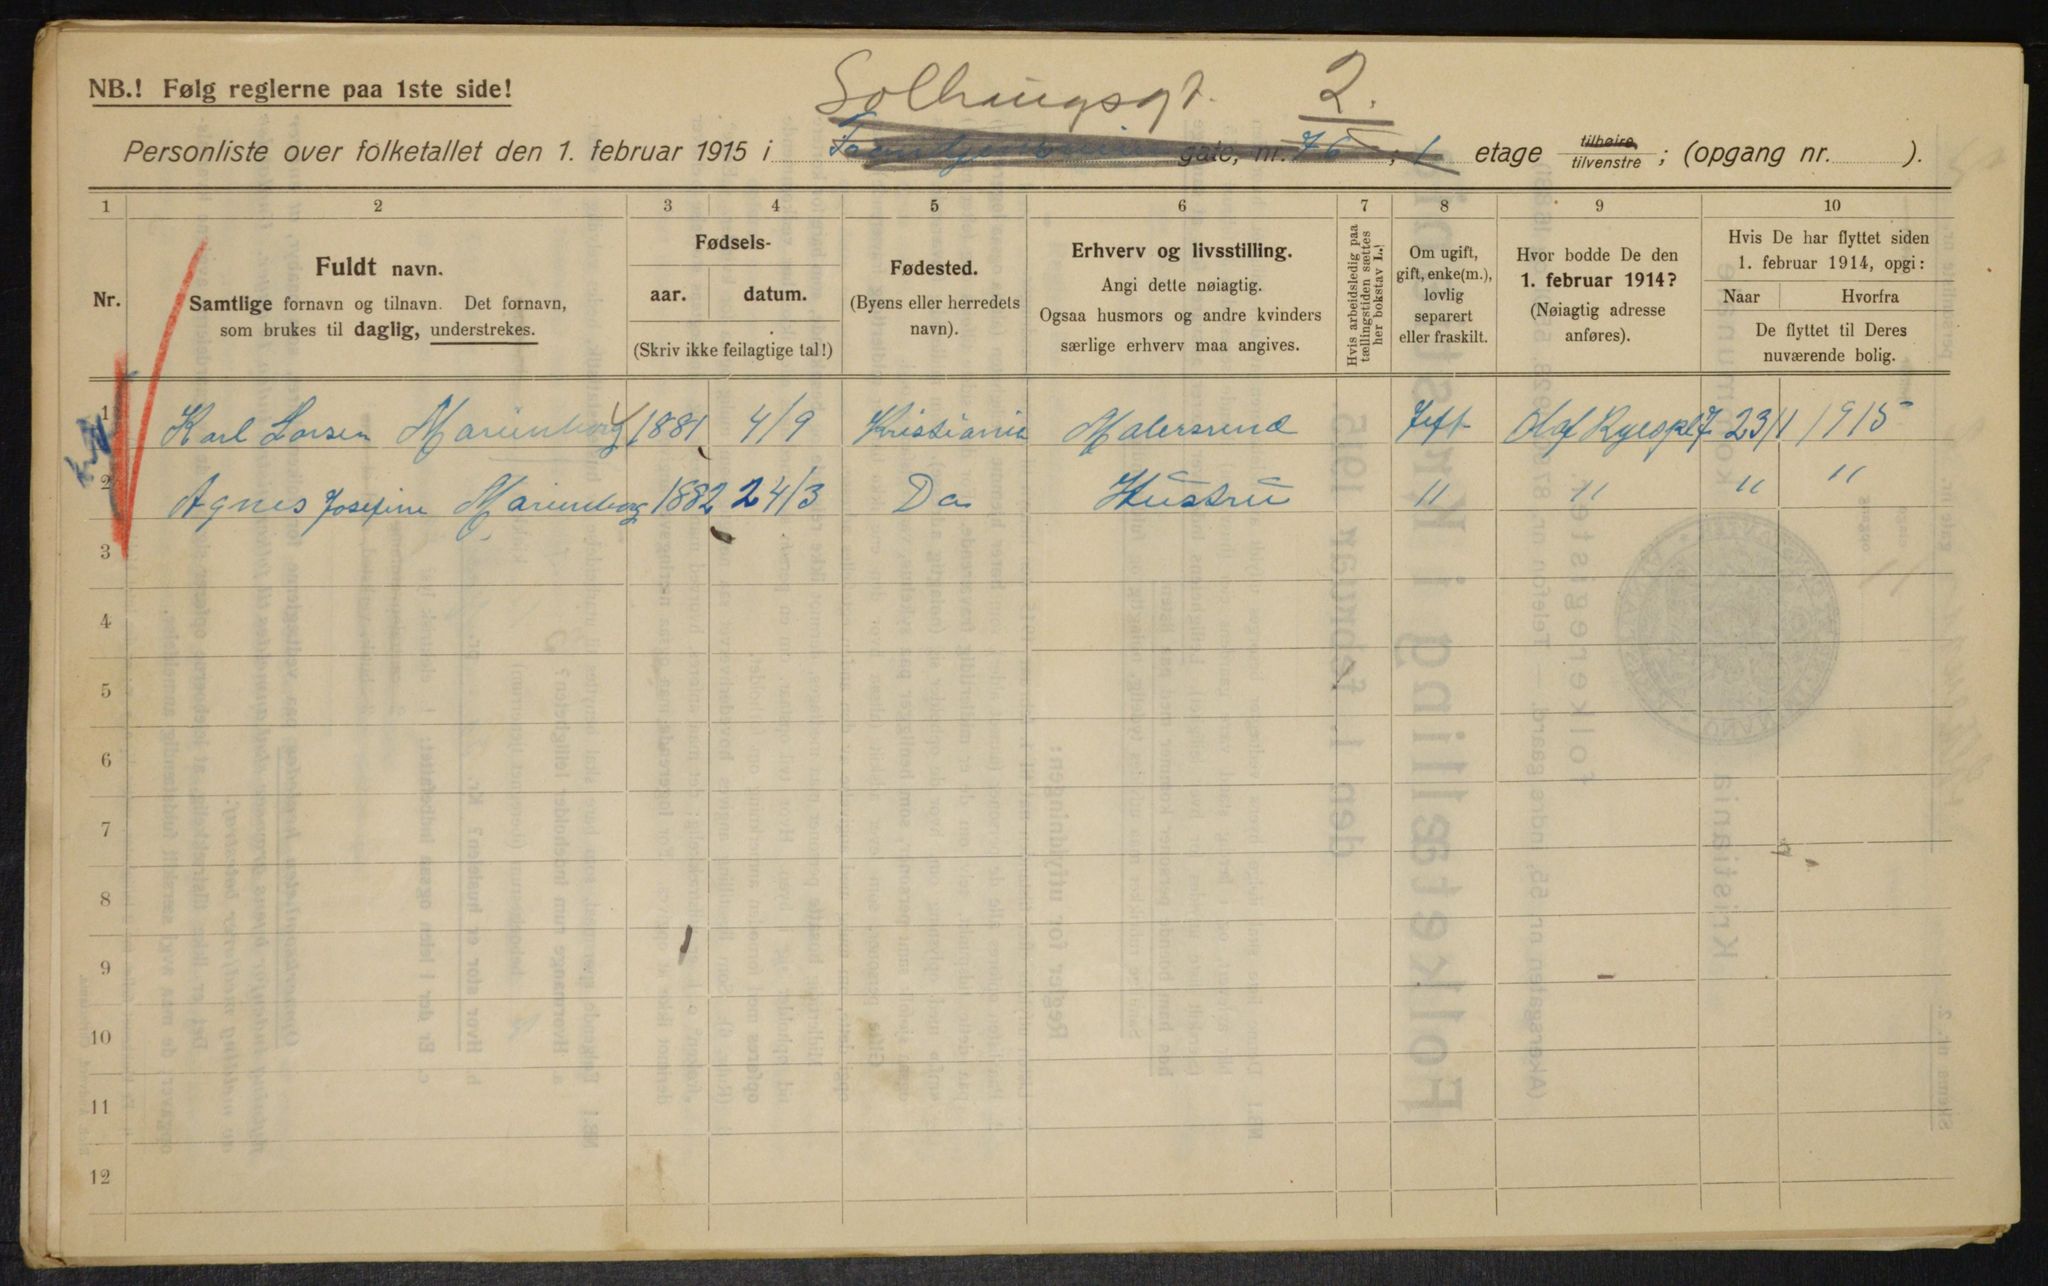 NB.! Følg reglerne paa 1ste side!
2.
Personliste over folketallet den 1. februar 1915 i gate, nr. 76 ; 1 etage tilhøire/tilvenstre ; (opgang nr. ).
1 2 3 4 5 6 7 8 9 10
Nr.
Fuldt navn.
Samtlige fornavn og tilnavn. Det fornavn,
som brukes til daglig, understrekes.
Fødsels-
aar. datum.
(Skriv ikke feilagtige tal!)
Fødested.
(Byens eller herredets
navn).
Erhverv og livsstilling.
Angi dette nøiagtig.
Ogsaa husmors og andre kvinders
særlige erhverv maa angives.
Hvis arbeidsledig paa
tællingstiden sættes
her bokstav L.!
Om ugift,
gift, enke(m.),
lovlig
separert
eller fraskilt.
Hvor bodde De den
1. februar 1914?
(Nøiagtig adresse
anføres).
Hvis De har flyttet siden
1. februar 1914, opgi:
Naar Hvorfra
De flyttet til Deres
nuværende bolig.
1 Karl Larsen Marienborg 1881 4/9 Kristiania Malersvend Gift Olaf Ryespl 7 23/1 1915
2 Agnes Josefine Marienborg 1882 24/3 Do Hustru " " " "
3
4
5
6
7
8
9
10
11
12